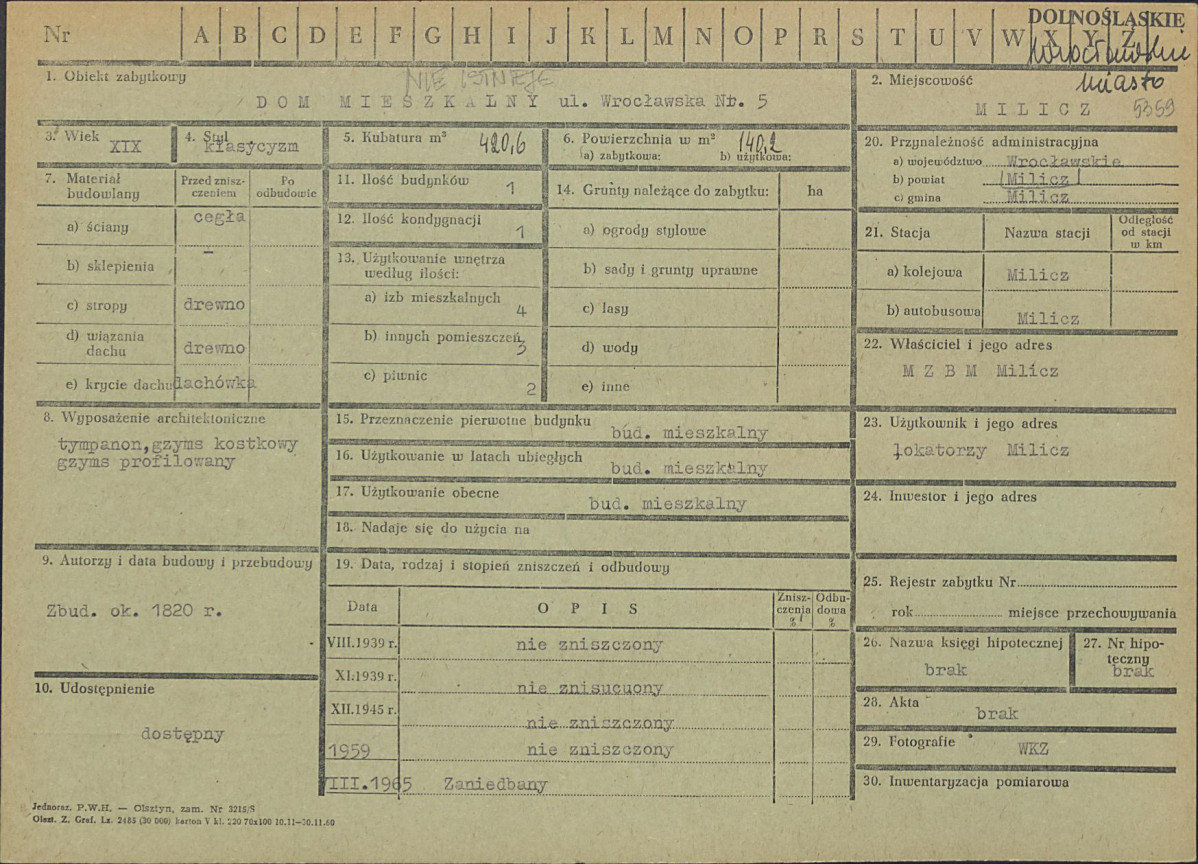 Nr A B C D E F G H I J K L M N O P R S T U V W X Y Z
DOLNOŚLĄSKIE
Wrocławskie
miasto
1. Obiekt zabytkowy
NIE ISTNIEJE
DOM MIESZKALNY ul. Wrocławska Nr. 5
2. Miejscowość
MILICZ 5359
3. Wiek
XIX
4. Styl
klasycyzm
5. Kubatura m³
420,6
6. Powierzchnia w m²
140,2
a) zabytkowa: b) użytkowa:
7. Materiał budowlany
Przed zniszczeniem
Po odbudowie
a) ściany cegła
b) sklepienia –
c) stropy drewno
d) wiązania dachu drewno
e) krycie dachu dachówka
8. Wyposażenie architektoniczne
tympanon,gzyms kostkowy
gzyms profilowany
9. Autorzy i data budowy i przebudowy
Zbud. ok. 1820 r.
10. Udostępnienie
dostępny
11. Ilość budynków
1
12. Ilość kondygnacji
1
13. Użytkowanie wnętrza
według ilości:
a) izb mieszkalnych
4
b) innych pomieszczeń
3
c) piwnic
2
14. Grunty należące do zabytku: ha
a) ogrody stylowe
b) sady i grunty uprawne
c) lasy
d) wody
e) inne
15. Przeznaczenie pierwotne budynku
bud. mieszkalny
16. Użytkowanie w latach ubiegłych
bud. mieszkalny
17. Użytkowanie obecne
bud. mieszkalny
18. Nadaje się do użycia na
19. Data, rodzaj i stopień zniszczeń i odbudowy
Data OPIS Zniszczenia % Odbudowa %
VIII.1939 r. nie zniszczony
XI.1939 r. nie znisucuony
XII.1945 r. nie zniszczony
1959 nie zniszczony
VIII.1965 Zaniedbany
20. Przynależność administracyjna
a) województwo Wrocławskie
b) powiat Milicz
c) gmina Milicz
21. Stacja
Nazwa stacji
Odległość od stacji w km
a) kolejowa Milicz
b) autobusowa Milicz
22. Właściciel i jego adres
M Z B M Milicz
23. Użytkownik i jego adres
lokatorzy Milicz
24. Inwestor i jego adres
25. Rejestr zabytku Nr
rok miejsce przechowywania
26. Nazwa księgi hipotecznej
brak
27. Nr hipoteczny
brak
28. Akta
brak
29. Fotografie
WKZ
30. Inwentaryzacja pomiarowa
Jednoraz. P.W.H. — Olsztyn, zam. Nr 3215/S
Olszt. Z. Graf. Lz. 2485 (30 000) karton V kl. 220 70x100 10.11—30.11.60